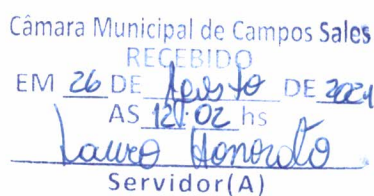 Câmara Municipal de Campos Sales
RECEBIDO
EM 26 DE Agosto DE 2021
AS 12:02 hs
Lauro Honorato
Servidor(A)